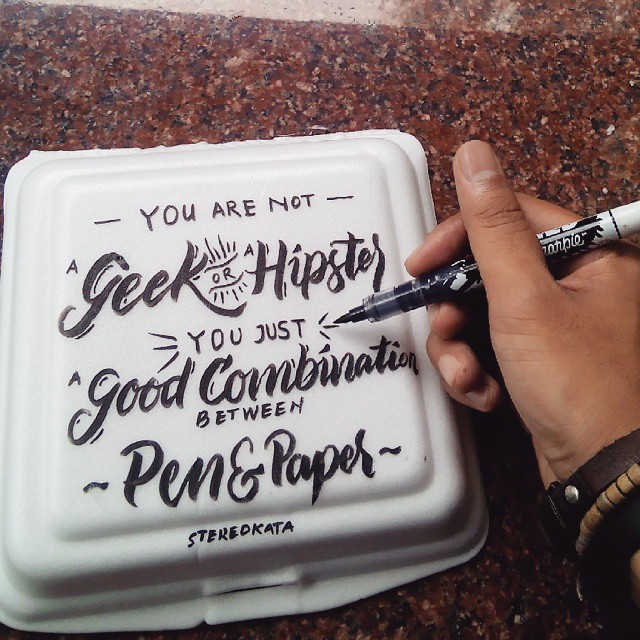 — YOU ARE NOT —
A Geek OR A Hipster
YOU JUST
A Good Combination
BETWEEN
~ Pen & Paper ~
STEREOKATA